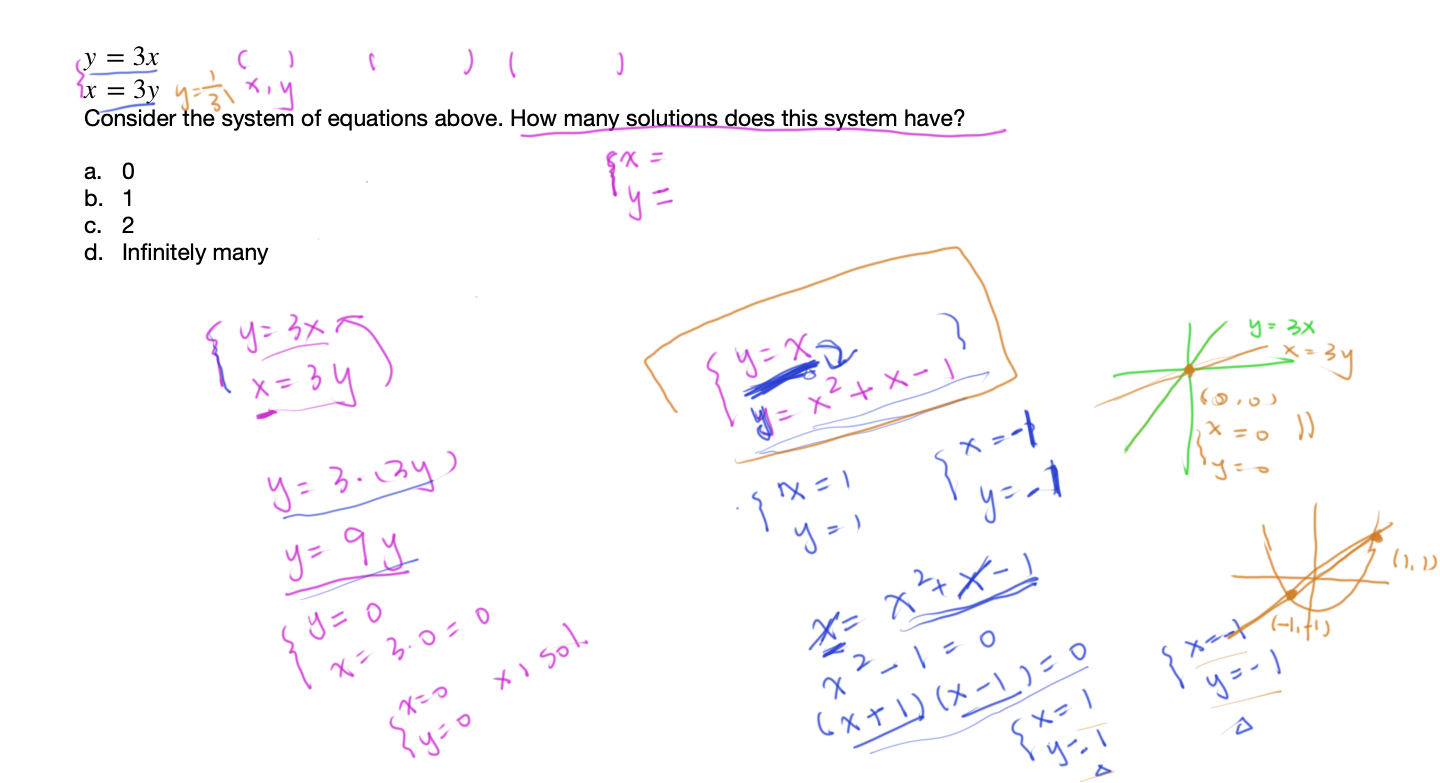 y = 3x ( ) ( ) ( )
x = 3y y = 1/3 x, y
Consider the system of equations above. How many solutions does this system have?
x =
y =
a. 0
b. 1
c. 2
d. Infinitely many
y = 3x
x = 3y
y = 3·(3y)
y = 9y
y = 0
x = 3·0 = 0
x=0
y=0
x 1 sol.
y = x
y = x² + x - 1
x = 1
y = 1
x = -1
y = -1
x = x² + x - 1
x² - 1 = 0
(x+1)(x-1) = 0
x = 1
y = 1
y = 3x
x = 3y
(0,0)
x = 0
y = 0
(1,1)
(-1,-1)
x = -1
y = -1